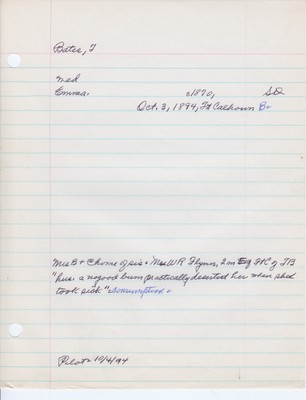 Bates, T
med
Emma. c1870, SD
Oct. 3, 1894, Ft Calhoun B+
Mrs B + C home of sis. Mrs W R Flynn, 2 m of Ft C of TB
"hus. a nogood bum practically deserted her when she
took sick" consumption
Pilot 10/4/94